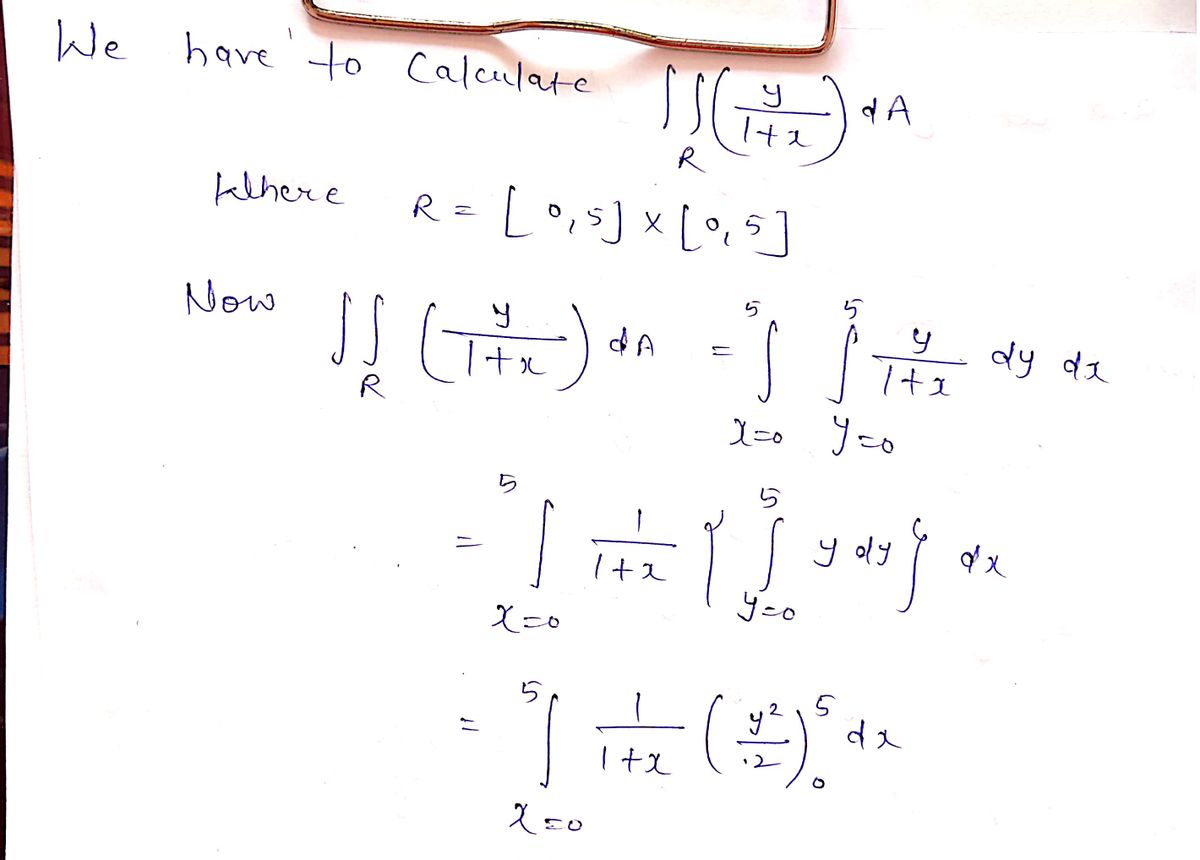 We have to Calculate ∬_R (y/(1+x)) dA
Where R = [0,5] × [0,5]
Now ∬_R (y/(1+x)) dA = ∫_{x=0}^{5} ∫_{y=0}^{5} y/(1+x) dy dx
= ∫_{x=0}^{5} 1/(1+x) { ∫_{y=0}^{5} y dy } dx
= ∫_{x=0}^{5} 1/(1+x) (y²/2)_0^5 dx